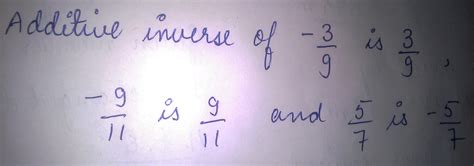 Additive inverse of -3/9 is 3/9,
-9/11 is 9/11 and 5/7 is -5/7